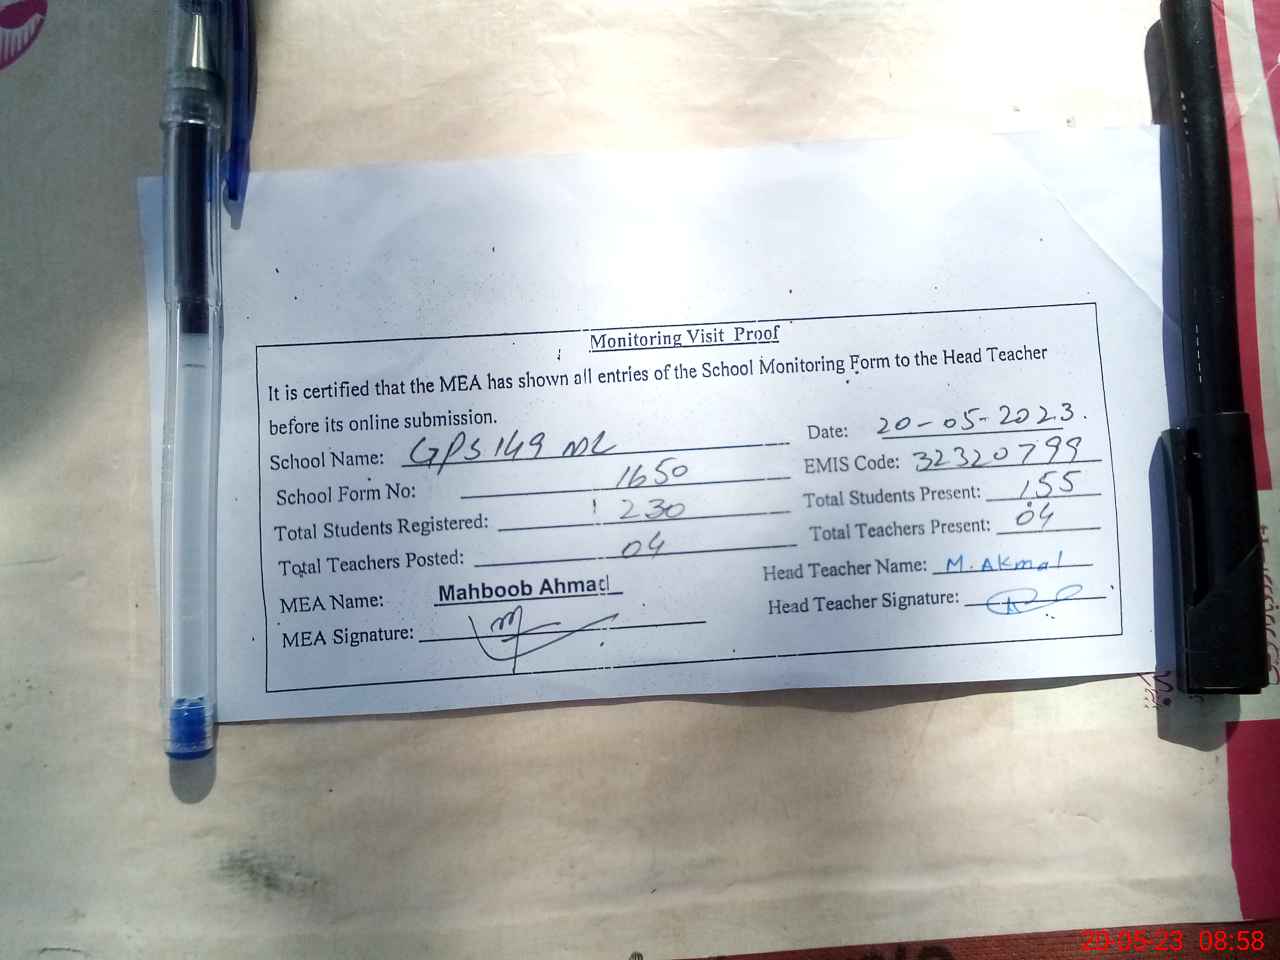 Monitoring Visit Proof
It is certified that the MEA has shown all entries of the School Monitoring Form to the Head Teacher
before its online submission.
Date: 20-05-2023.
School Name: GPS 149 ML
EMIS Code: 32320799
School Form No: 1650
Total Students Present: 155
Total Students Registered: 230
Total Teachers Present: 04
Total Teachers Posted: 04
Head Teacher Name: M. Akmal
MEA Name: Mahboob Ahmad
Head Teacher Signature:
MEA Signature:
20-05-23 08:58